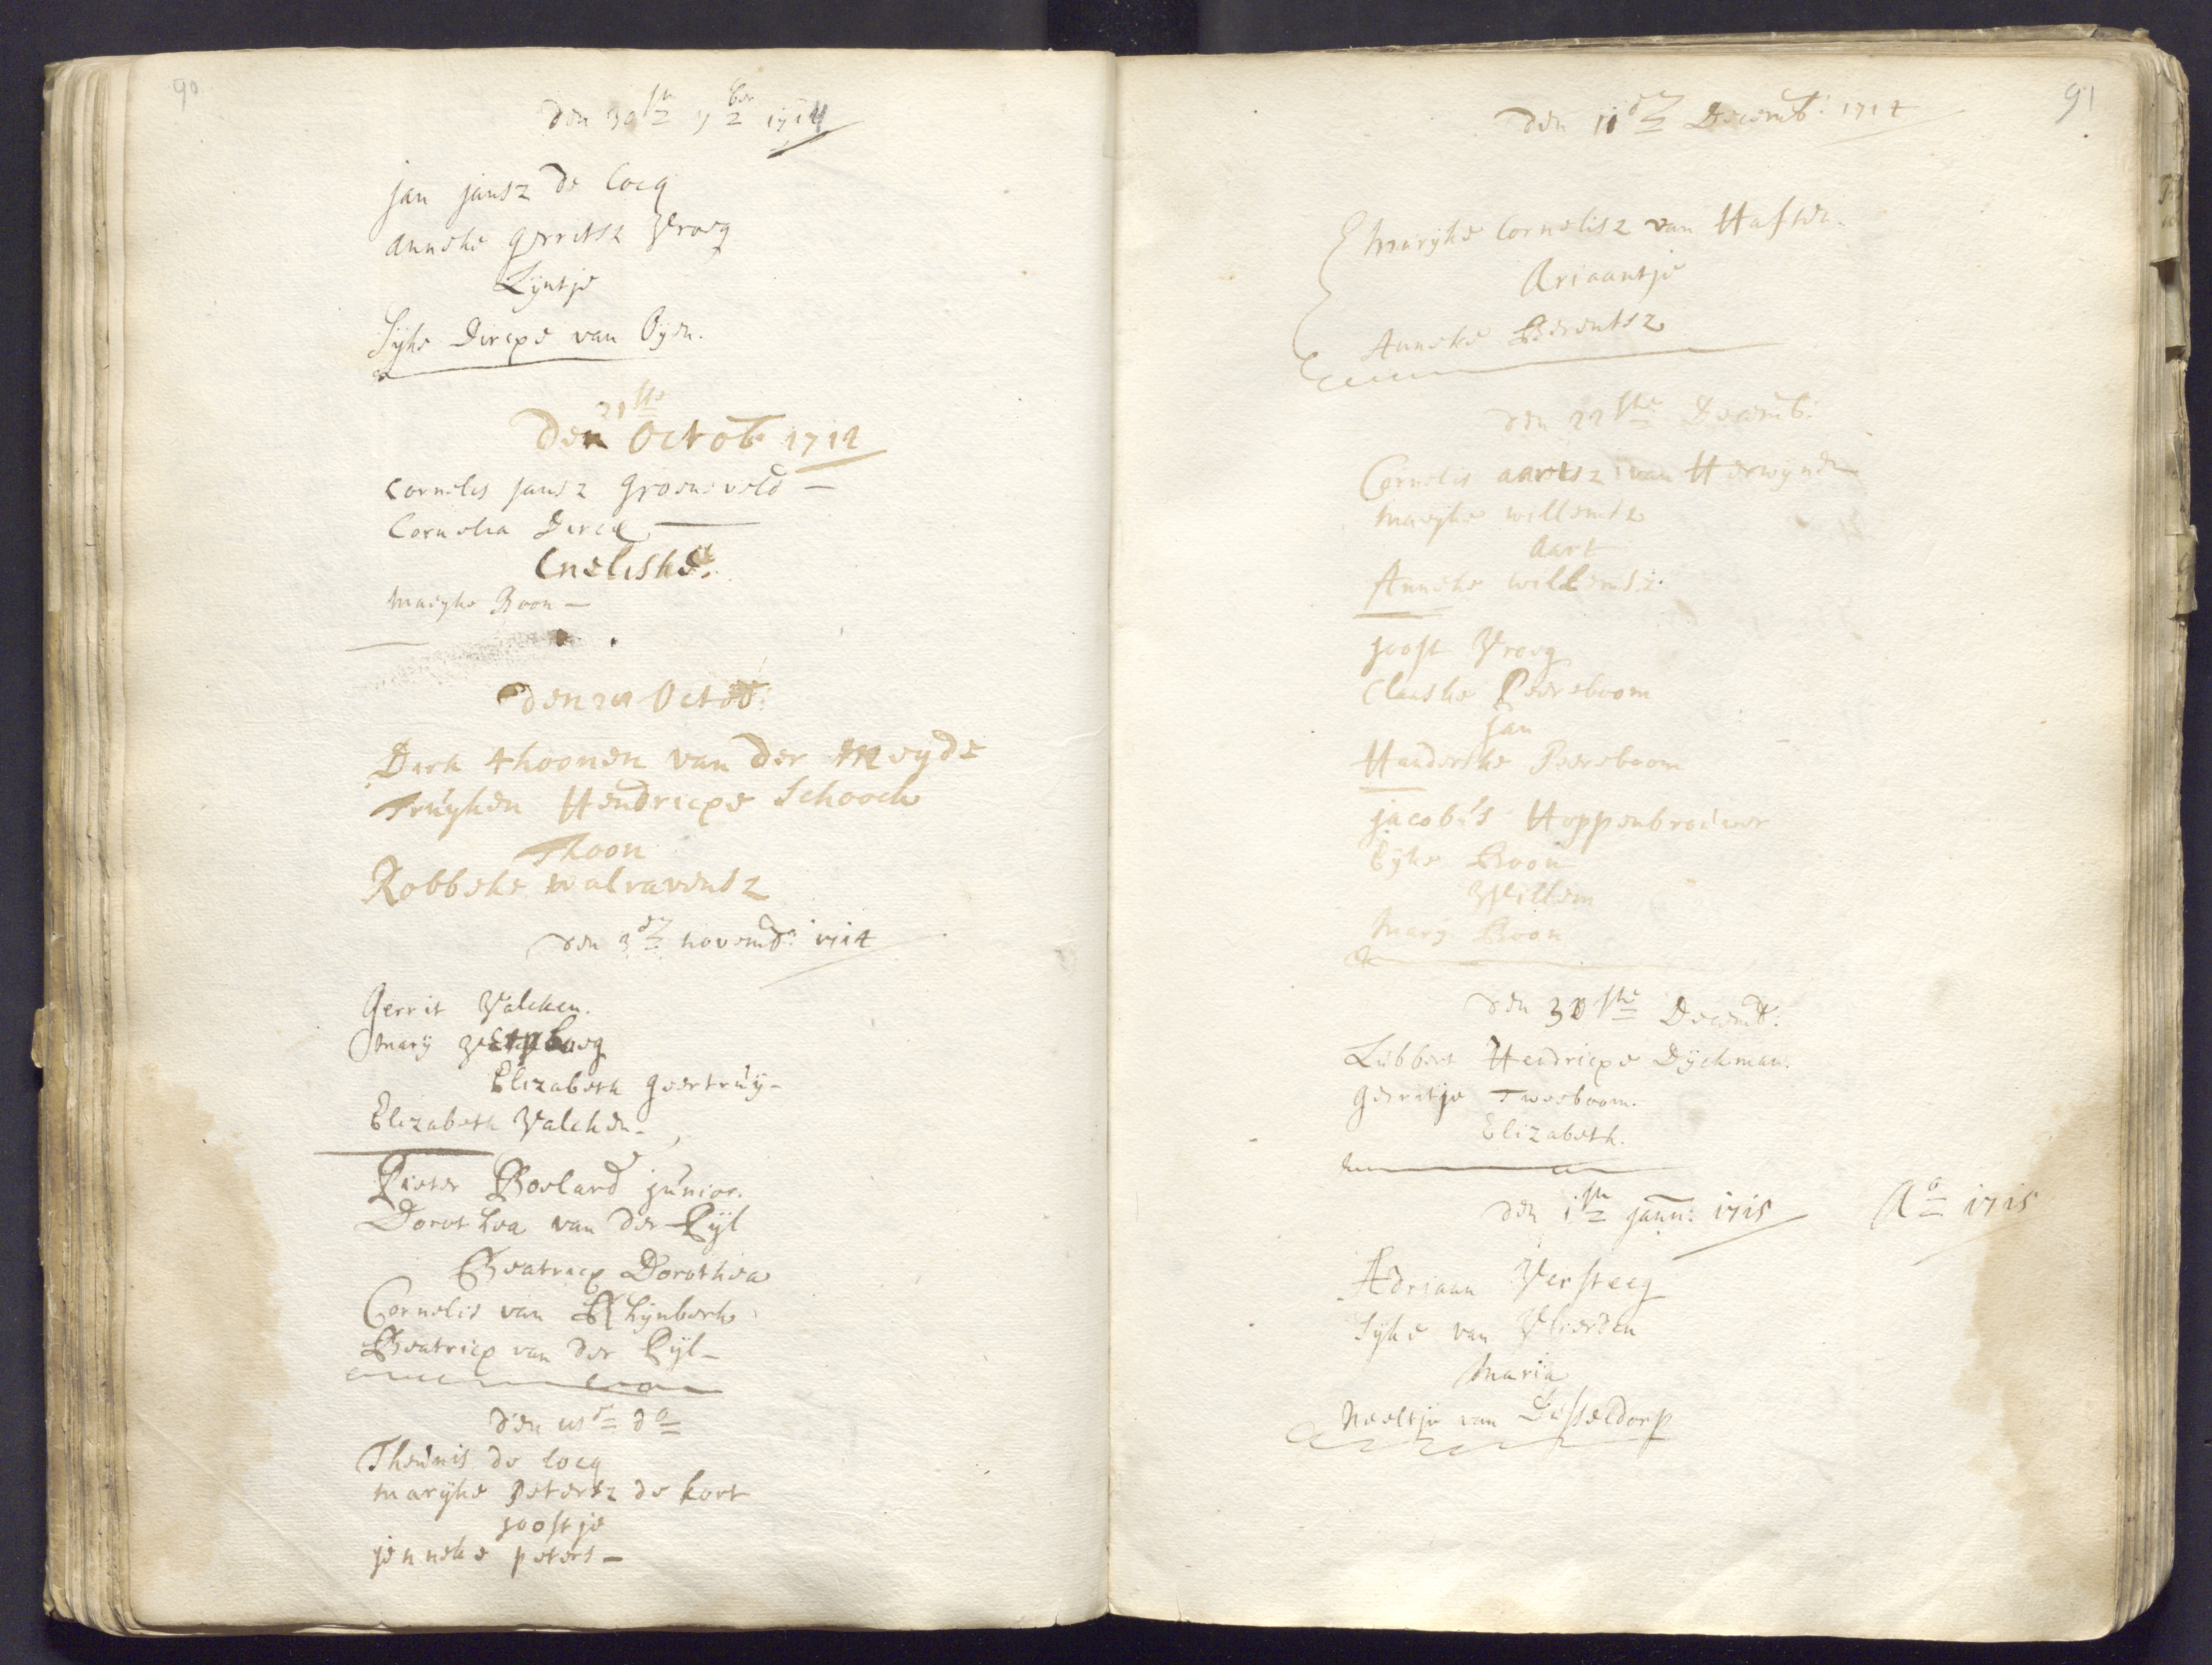 90
den 30ste 7ber 1714
Jan Jansz de Cocq
Anneke Gerritsz Vroeg
Lyntje
Syke Dircxe van Oyen.
21ste
Den Octob. 1714
Cornelis Jansz Groeneveld
Cornelia Dircx
Cneliske
Maeyke Boon
Den Octob:
Dirk Thoonen van der Meyde
Truyken Hendricxe Schooch
Thoon
Robbeke Walravensz
den 3de Novemb: 1714
Gerrit Valcken.
Mary
Elizabeth Geertruy
Elizabeth Valcken
Pieter Boeland Junior.
Dorothea van der Pijl
Beatricx Dorothea
Cornelis van Rhynberk
Beatricx van der Pijl
den do
Theunis de Cocq
Maryke Petersz de Kort
Joostje
Jenneke Peters
91
den 11de Decemb: 1714
Maryke Cornelisz van Haften.
Ariaantje
Anneke Berentsz
den 22ste Decemb:
Cornelis Aartsz van Herwynde
Maeyke Willemsz
Aart
Anneke Willemsz.
Joost Vroeg
Claeske Peereboom
Jan
Henderske Peereboom
Jacobus Hoppenbrouwer
Eyke Boon
Willem
Mary Boon
den 30ste Decemb:
Lubbert Hendricxe Dyckman.
Gerritje Tweeboom.
Elizabeth.
den 1ste Jann: 1715
Ao 1715
Adriaan Versteeg
Syke van Vlierden
Maria
Neeltje van Disseldorp